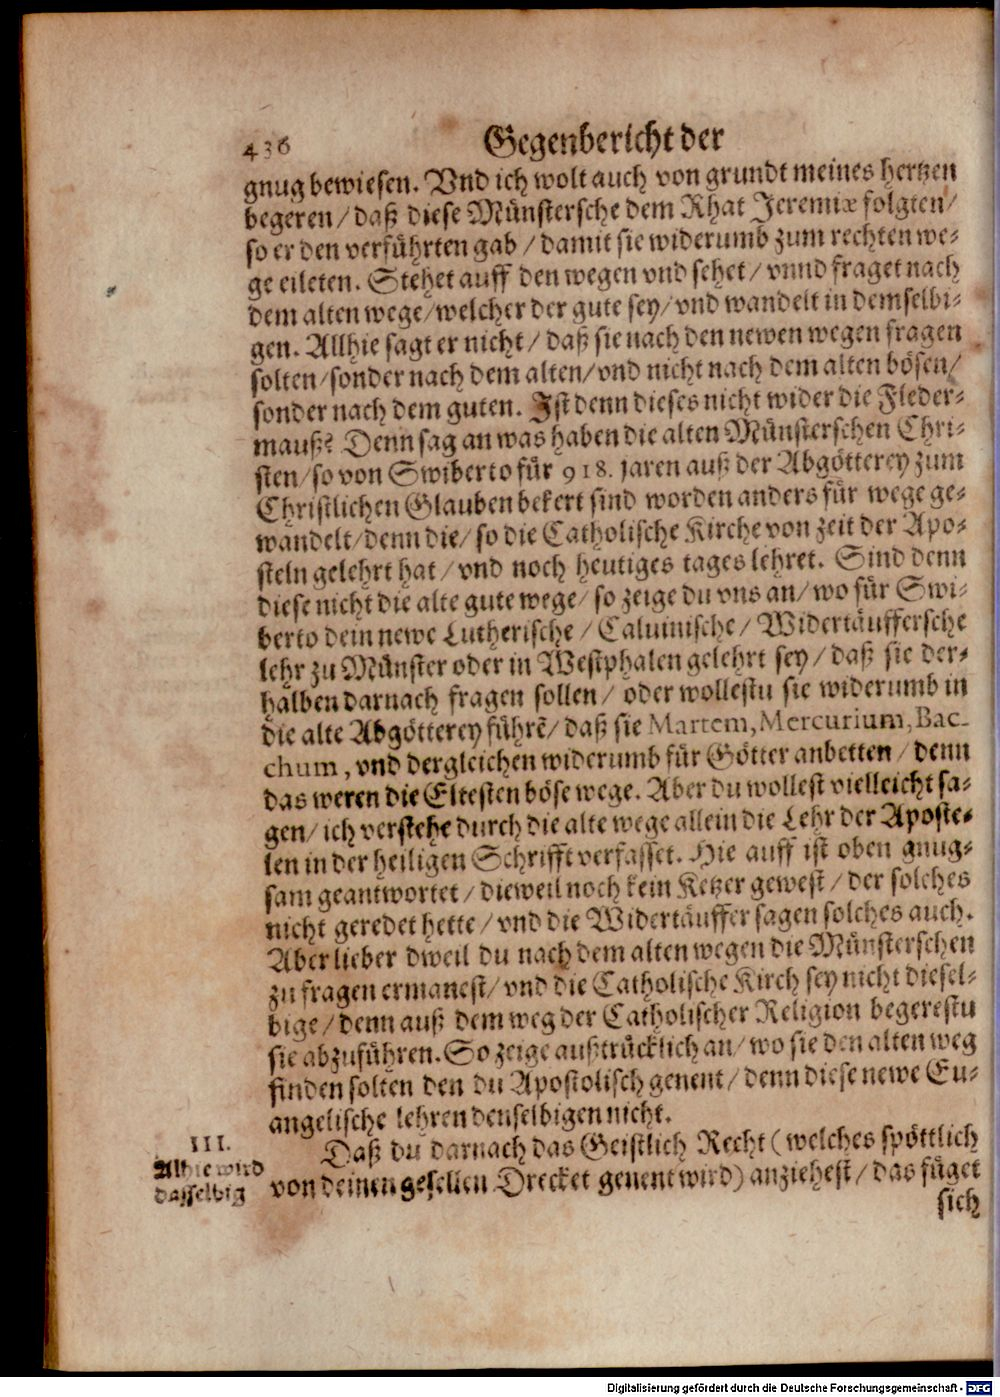 436 Gegenbericht der
gnug bewiesen. Vnd ich wolt auch von grundt meines hertzen
begeren / daß diese Münstersche dem Rhat Jeremiæ folgten /
so er den verführten gab / damit sie widerumb zum rechten we-
ge eileten. Stehet auff den wegen vnd sehet / vnnd fraget nach
dem alten wege / welcher der gute sey / vnd wandelt in demselbi-
gen. Allhie sagt er nicht / daß sie nach den newen wegen fragen
solten / sonder nach dem alten / vnd nicht nach dem alten bösen /
sonder nach dem guten. Ist denn dieses nicht wider die Fleder-
mauß? Denn sag an was haben die alten Münsterschen Chri-
sten / so von Swiberto für 918. jaren auß der Abgötterey zum
Christlichen Glauben bekert sind worden anders für wege ge-
wandelt / denn die / so die Catholische Kirche von zeit der Apo-
steln gelehrt hat / vnd noch heutiges tages lehret. Sind denn
diese nicht die alte gute wege / so zeige du vns an / wo für Swi-
berto dein newe Lutherische / Caluinische / Widertäuffersche
lehr zu Münster oder in Westphalen gelehrt sey / daß sie der-
halben darnach fragen sollen / oder wollestu sie widerumb in
die alte Abgötterey führē / daß sie Martem, Mercurium, Bac-
chum, vnd dergleichen widerumb für Götter anbetten / denn
das weren die Eltesten böse wege. Aber du wollest vielleicht sa-
gen / ich verstehe durch die alte wege allein die Lehr der Aposte-
len in der heiligen Schrifft verfasset. Hie auff ist oben gnug-
sam geantwortet / dieweil noch kein Ketzer gewest / der solches
nicht geredet hette / vnd die Widertäuffer sagen solches auch.
Aber lieber dweil du nach dem alten wegen die Münsterschen
zu fragen ermanest / vnd die Catholische Kirch sey nicht diesel-
bige / denn auß dem weg der Catholischer Religion begerestu
sie abzuführen. So zeige außtrücklich an / wo sie den alten weg
finden solten den du Apostolisch genent / denn diese newe Eu-
angelische lehren denselbigen nicht.
III.
Alhie wird
dasselbig
Daß du darnach das Geistlich Recht (welches spöttlich
von deinen gesellen Drecket genent wird) anziehest / das füget
sich
Digitalisierung gefördert durch die Deutsche Forschungsgemeinschaft - DFG